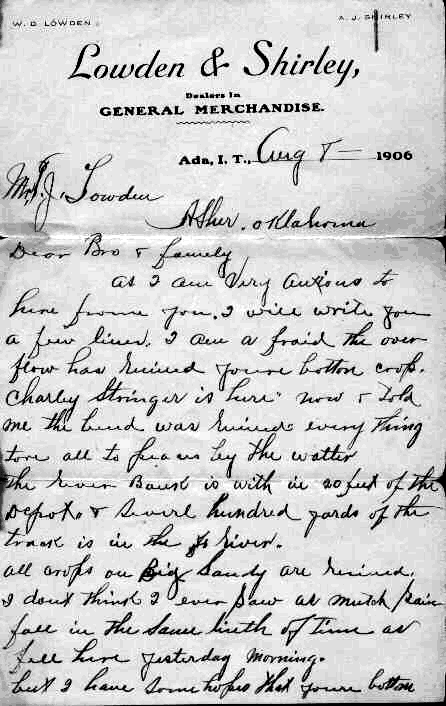 W. D. LOWDEN
A. J. SHIRLEY
Lowden & Shirley,
Dealers In
GENERAL MERCHANDISE.
Ada, I. T., Aug 8 1906
J. Lowden
Asher, Oklahoma
Dear Bro & family
as I am very anxious to
here frome you. I will write you
a few lines. I am a fraid the over
flow has ruined youre botton crop.
Charley Stringer is here now & told
me the bend was ruined every thing
tore all to peaces by the watter
the river Bank is with in 20 feet of the
Depot & sevirl hundred yards of the
track is in the river.
all crops on Big Sandy are ruined.
I dont think I ever saw as mutch rain
fall in the same linth of time as
fell here yesterday morning.
but I have some hopes that youre bottom